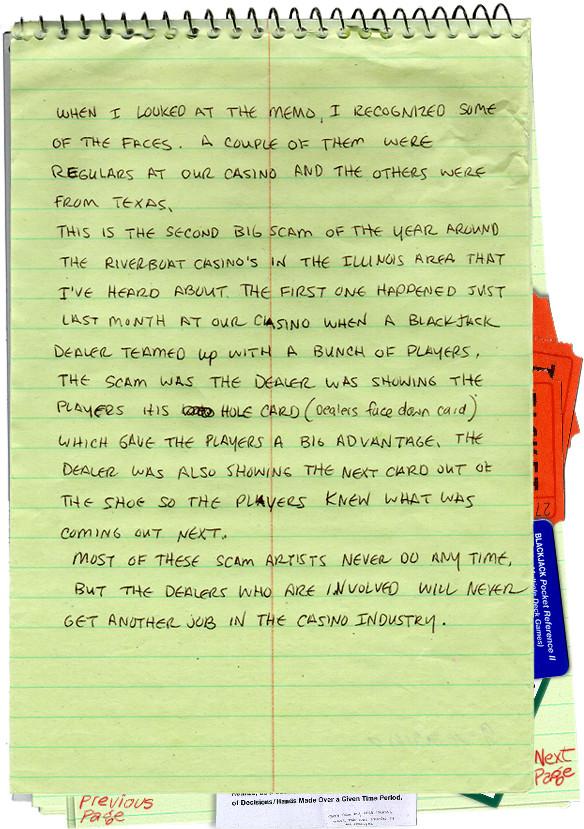 WHEN I LOOKED AT THE MEMO, I RECOGNIZED SOME
OF THE FACES. A COUPLE OF THEM WERE
REGULARS AT OUR CASINO AND THE OTHERS WERE
FROM TEXAS.
THIS IS THE SECOND BIG SCAM OF THE YEAR AROUND
THE RIVERBOAT CASINO'S IN THE ILLINOIS AREA THAT
I'VE HEARD ABOUT. THE FIRST ONE HAPPENED JUST
LAST MONTH AT OUR CASINO WHEN A BLACKJACK
DEALER TEAMED UP WITH A BUNCH OF PLAYERS.
THE SCAM WAS THE DEALER WAS SHOWING THE
PLAYERS HIS HOLE CARD (Dealers face down card)
WHICH GAVE THE PLAYERS A BIG ADVANTAGE. THE
DEALER WAS ALSO SHOWING THE NEXT CARD OUT OF
THE SHOE SO THE PLAYERS KNEW WHAT WAS
COMING OUT NEXT.
MOST OF THESE SCAM ARTISTS NEVER DO ANY TIME,
BUT THE DEALERS WHO ARE INVOLVED WILL NEVER
GET ANOTHER JOB IN THE CASINO INDUSTRY.
27
BLACKJACK Pocket Reference II
Deck Games)
Next
Page
Previous
Page
of Decisions/Hands Made Over a Given Time Period.